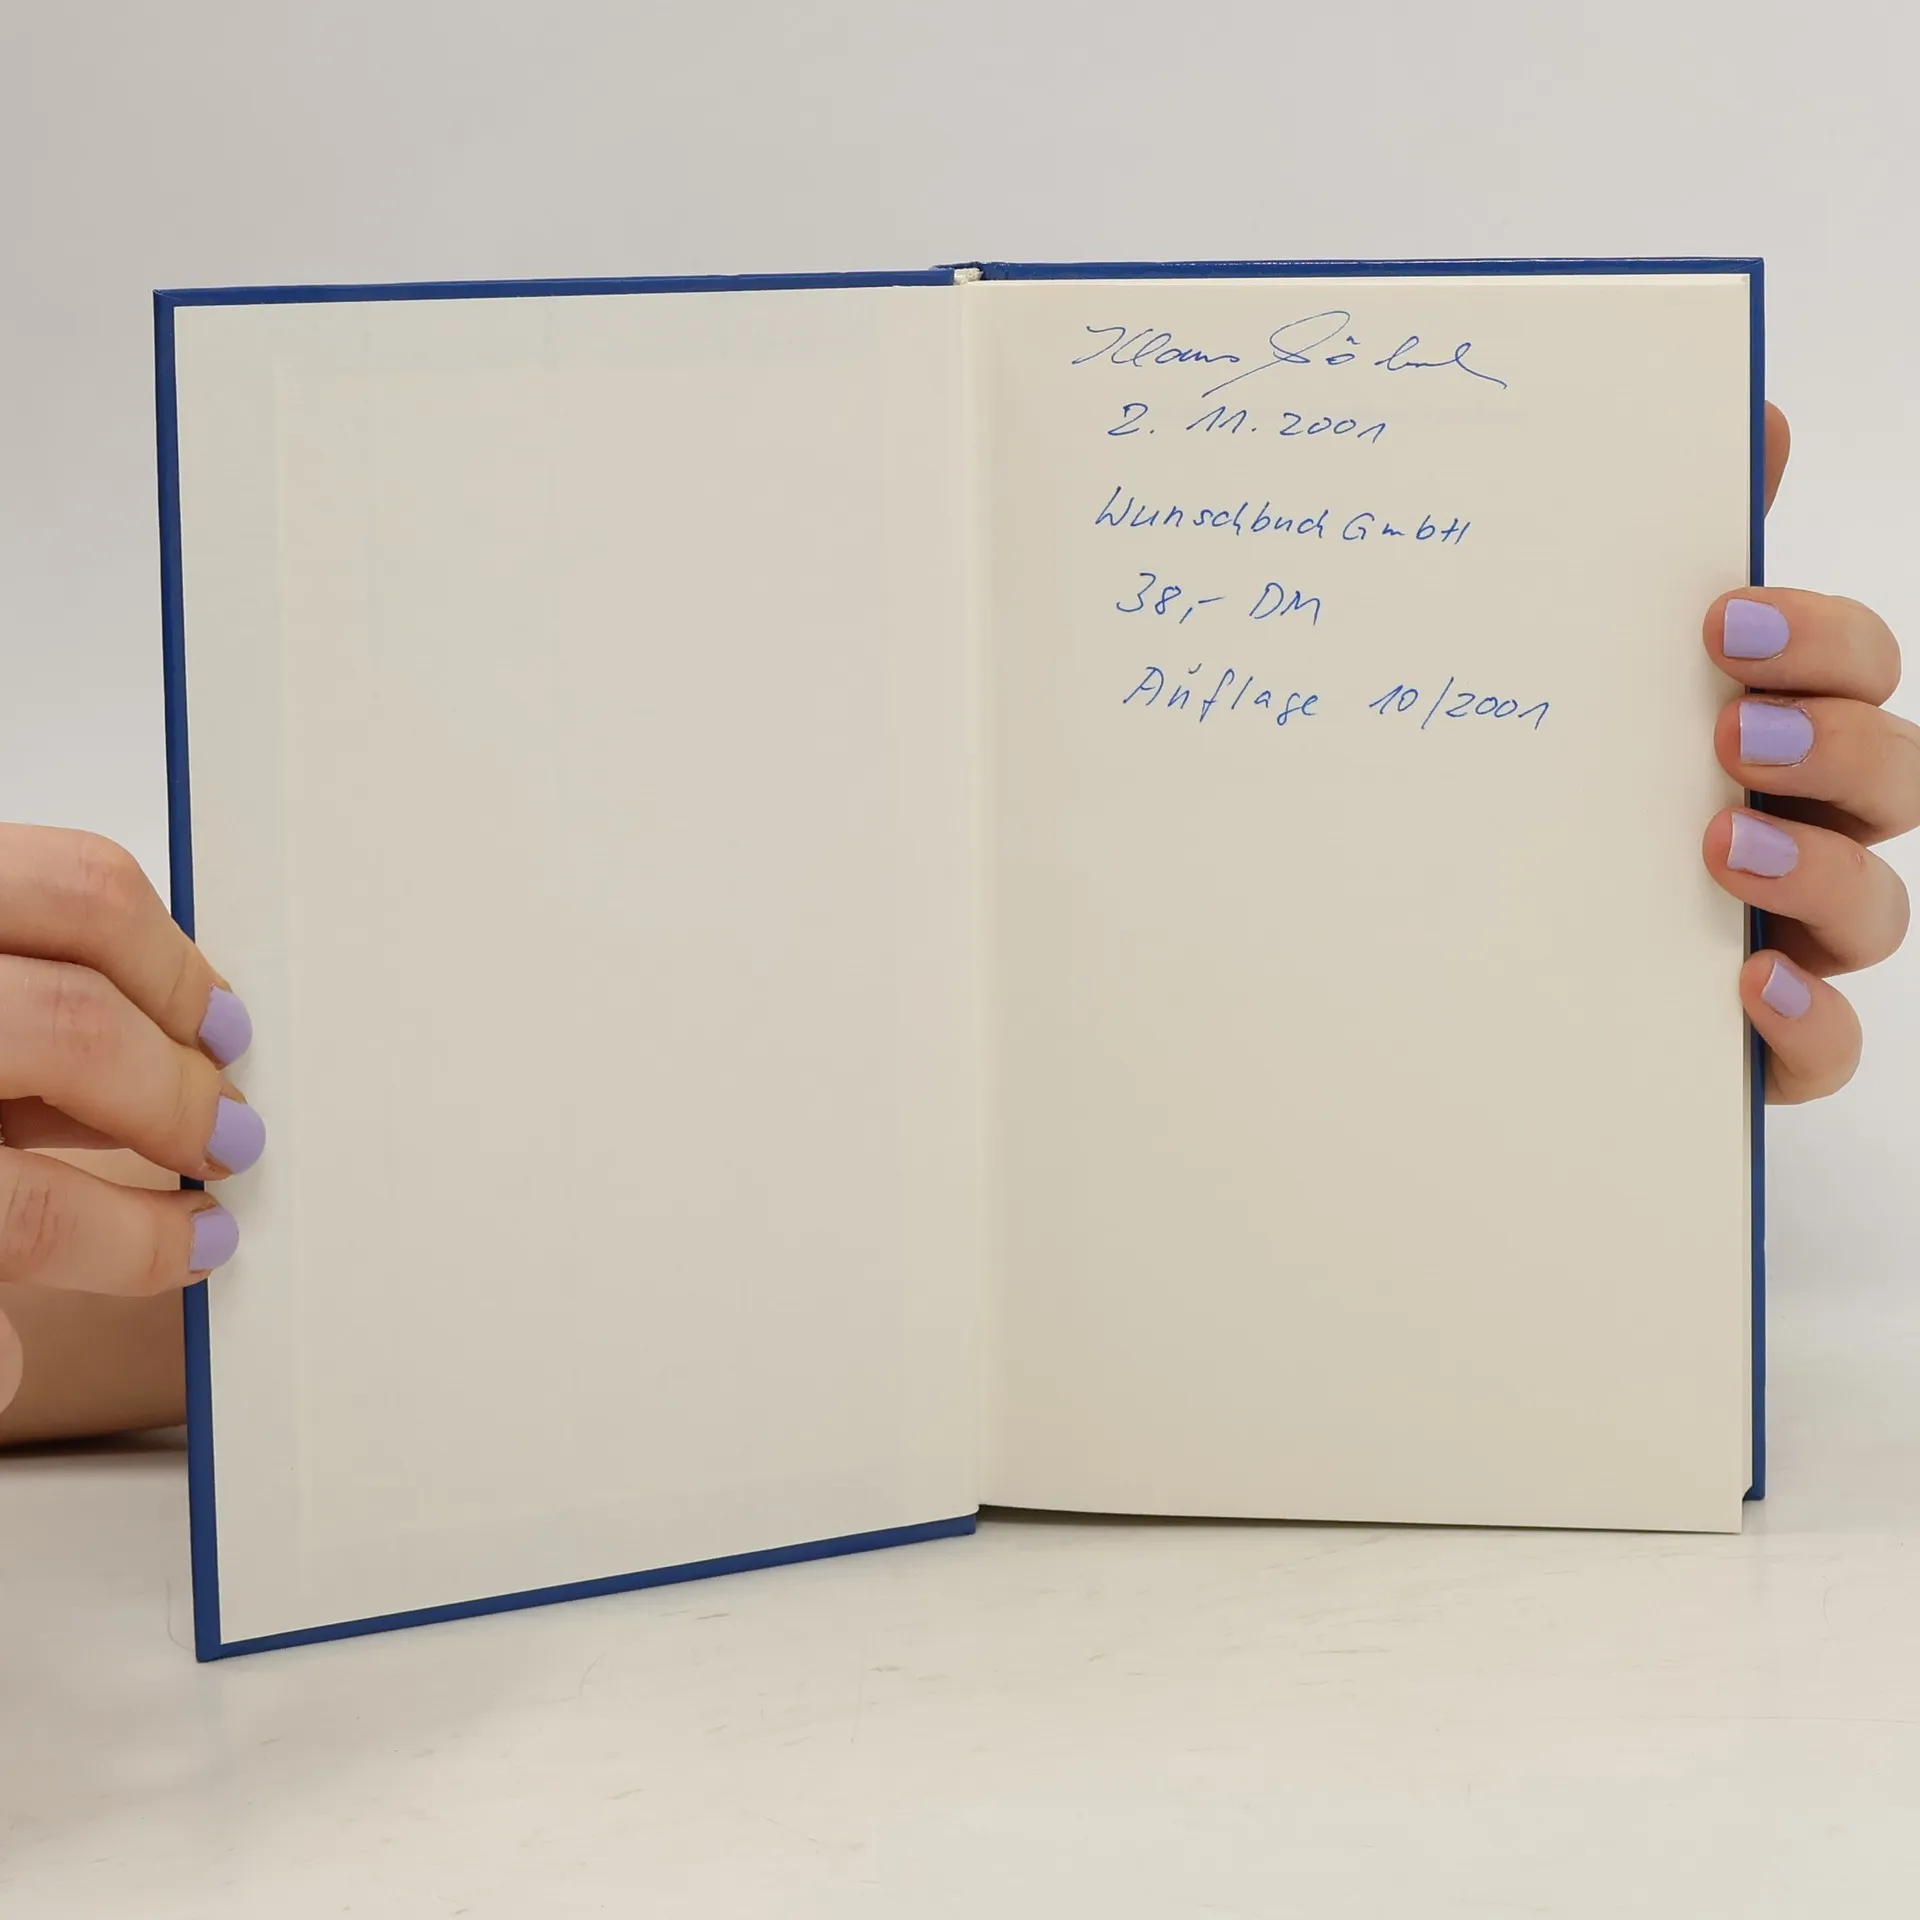 Klaus
2. 11. 2001
Wunschbuch GmbH
38,- DM
Auflage 10/2001